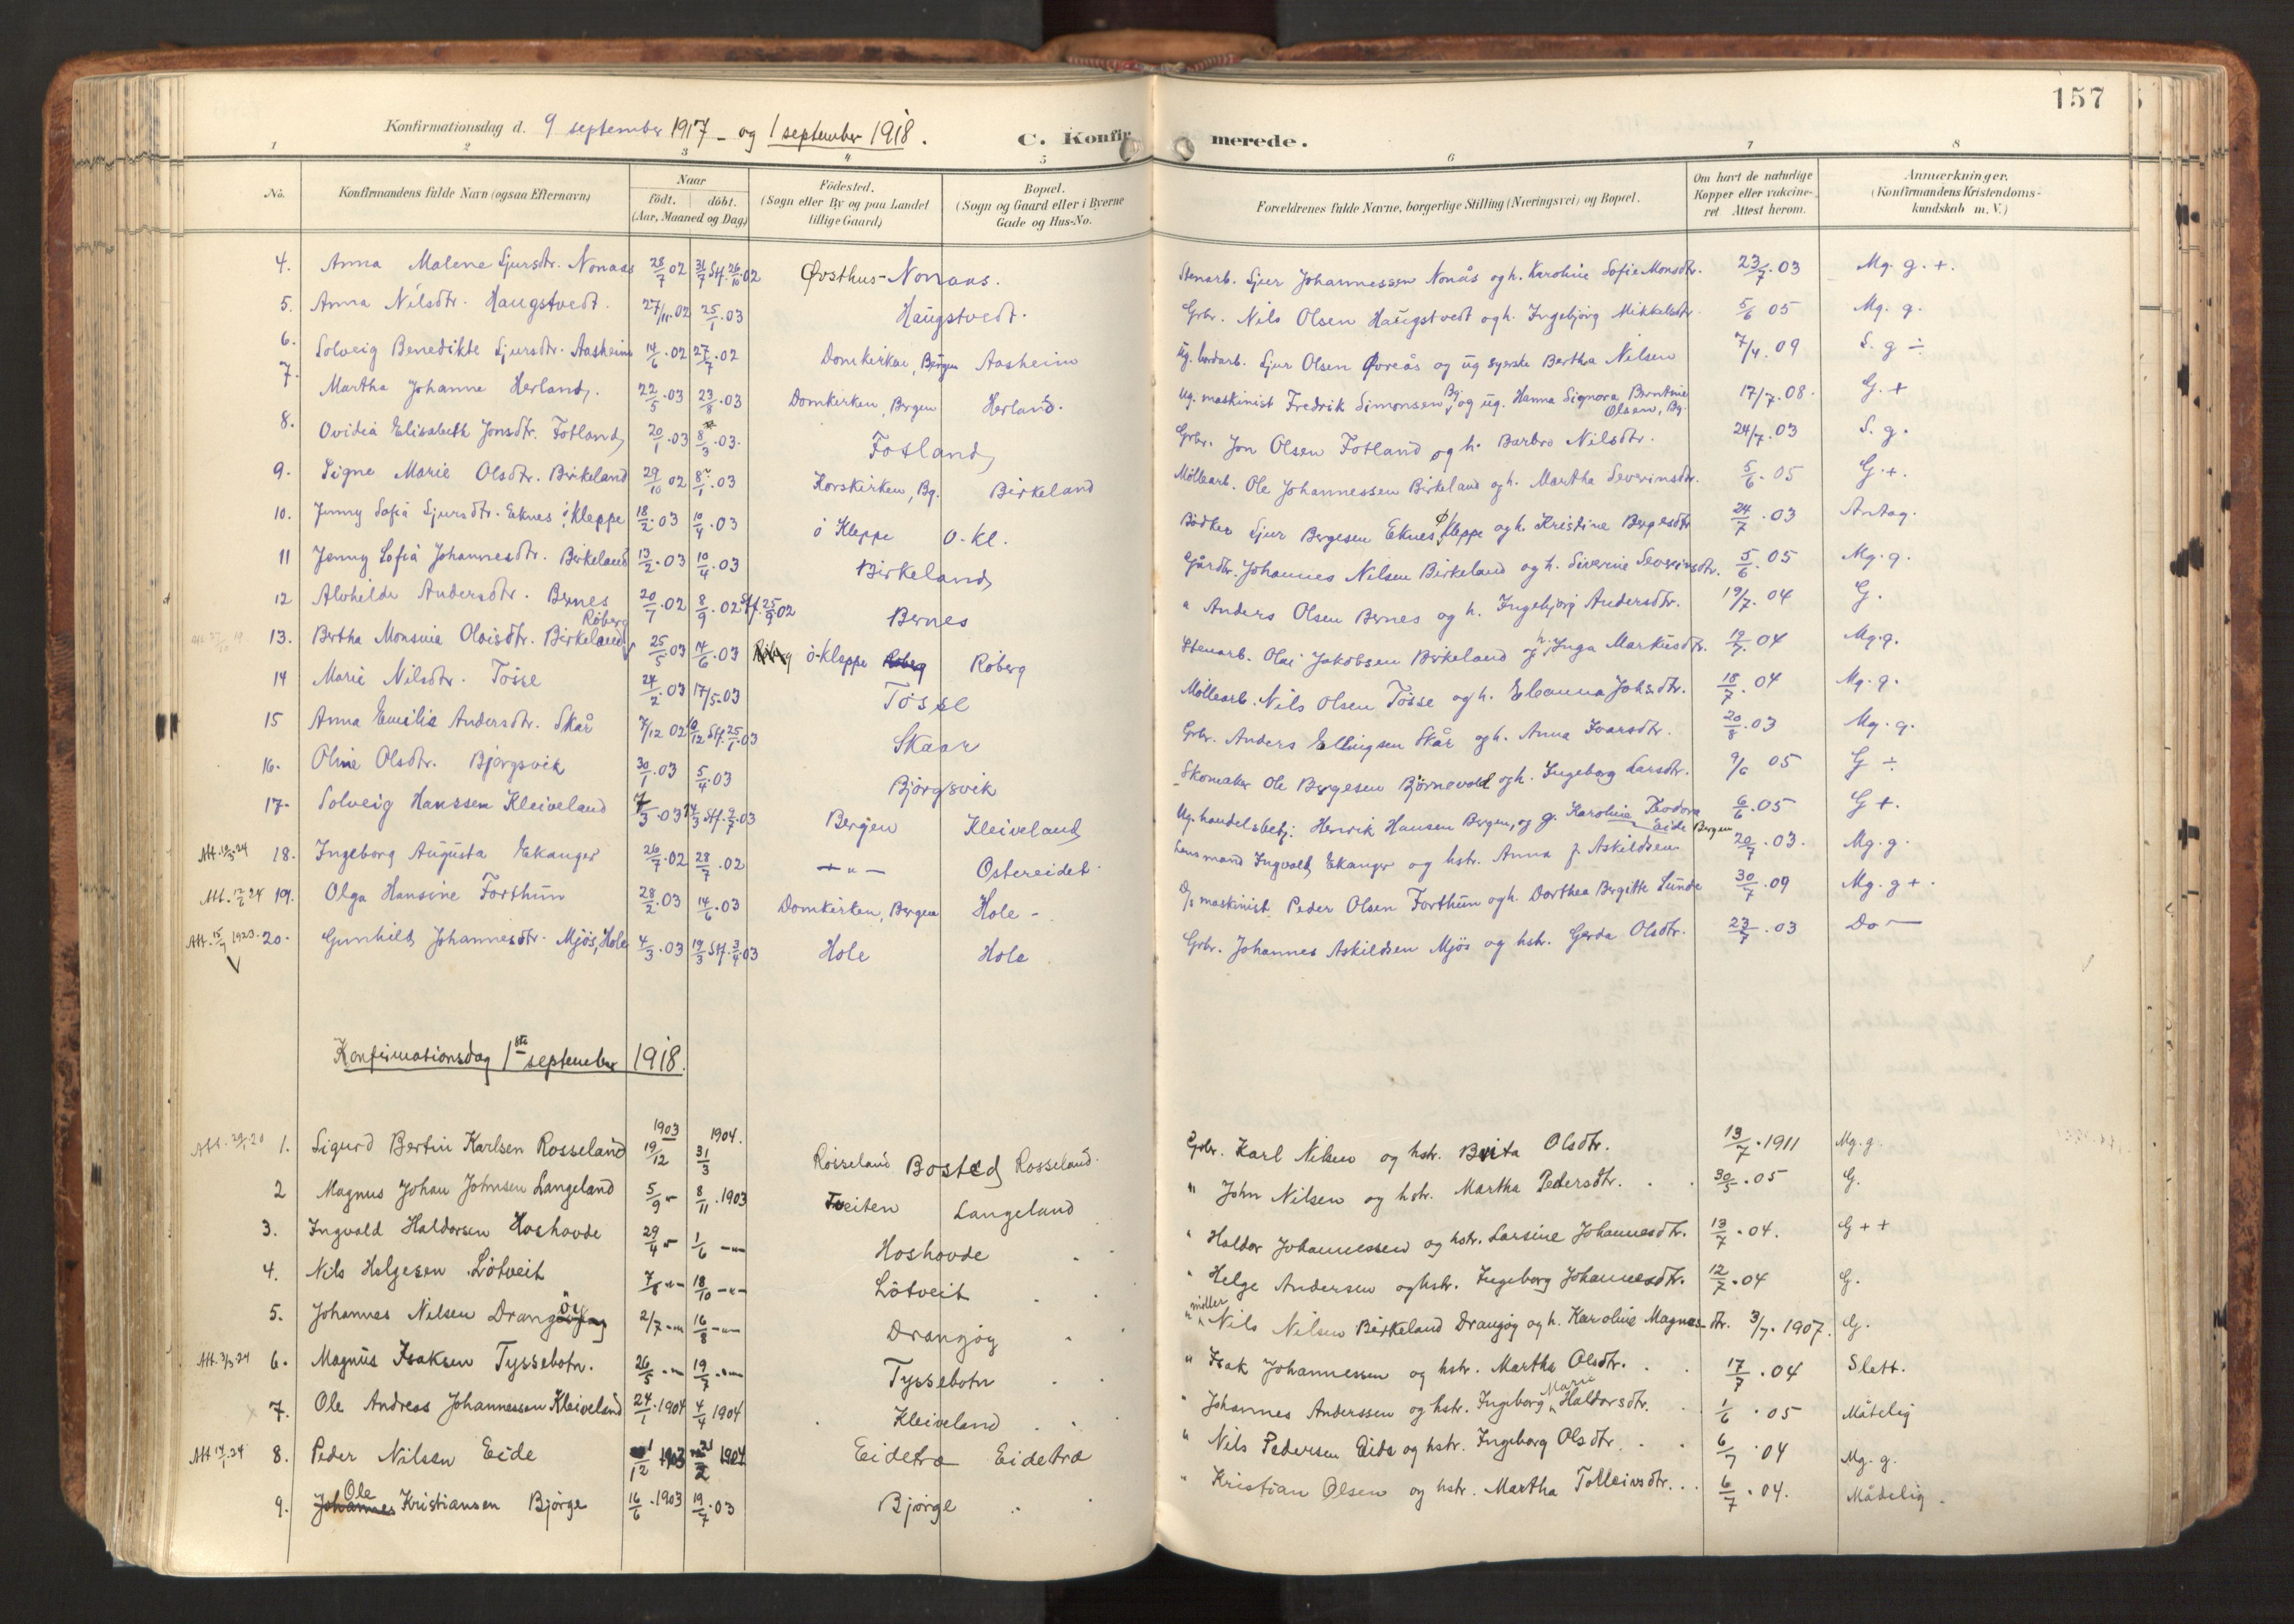 157
Konfirmationsdag d. 9 september 1917 - og 1 september 1918.
C. Konfirmerede.
1 2 3 4 5 6 7 8
No. Konfirmandens fulde Navn (ogsaa Efternavn) Naar født. døbt. (Aar, Maaned og Dag) Födested. (Sogn eller By og paa Landet tillige Gaard) Bopæl. (Sogn og Gaard eller i Byerne Gade og Hus-No. Forældrenes fulde Navne, borgerlige Stilling (Næringsvei) og Bopæl. Om havt de naturlige Kopper eller vakcineret Attest herom. Anmærkninger. (Konfirmandens Kristendomskundskab m. V.)
4. Anna Malene Sjursdtr. Nonaas 28/7 02 31/7 Stf. 26/10 02 Øvsthus-Nonaas. Stenarb. Sjur Johannessen Nonås og h. Karoline Sofie Monsdtr. 23/7.03 Mg. g. +.
5. Anna Nilsdtr. Haugstvedt. 27/11.02 25/1.03 Haugstvedt. Grbr. Nils Olsen Haugstvedt og h. Ingebjörg Mikkelsdtr. 5/6 05 Mg. g.
6. Solveig Benedikte Sjursdtr. Aasheim 14/6.02 27/7.02 Domkirken, Bergen Aasheim Ug. Sjur Olsen Øvreås og ug syerske Bertha Nilsen 7/4.09 S. g ÷
7. Martha Johanne Herland. 22/5.03 23/8.03 Domkirken, Bergen Herland. Ug. maskinist Fredrik Simonsen, Bg. og ug. Hanna Signora Berntine Olsen, Bg. 17/7.08. G. +
8. Ovidia Elisabeth Jonsdtr. Fotland 20/1.03 8/3.03. Fotland Grbr. Jon Olsen Fotland og h. Barbro Nilsdtr. 24/7.03 S. g.
9. Signe Marie Olsdtr. Birkeland 29/10 02 8/1.03 Korskirken, Bg. Birkeland Møllearb. Ole Johannessen Birkeland og h. Martha Severinsdtr. 5/6.05 G. +.
10. Jenny Sofia Sjursdtr. Eknes, ö Kleppe 18/2.03 10/4.03 ö Kleppe O. Kl. Bödker Sjur Bergesen Eknes, ø Kleppe og h. Kristine Bergesdtr 24/7.03 Antag.
11 Jenny Sofia Johannesdtr. Birkeland 13/2.03 10/4.03 Birkeland Gårdbr. Johannes Nilsen Birkeland og h. Siverine Severinsdtr. 5/6.05 Mg. g.
12 Alvhilde Andersdtr. Bernes 20/7.02 8/9.02 Stf. 25/9 02 Bernes " Anders Olsen Bernes og h. Ingebjörg Andersdtr. 19/7.04 G.
13. Bertha Monsine Olaisdtr. Birkeland Röberg 25/5.03 14/6.03 ö-Kleppe Röberg Stenarb. Olai Jakobsen Birkeland og h. Inga Markusdtr. 19/7.04 Mg. g.
14 Marie Nilsdtr. Tösse 24/2.03 17/5.03 Tösse Møllearb. Nils Olsen Tösse og h. Eleanna Johsdtr. 18/7.04 Mg. g.
15 Anna Emilie Andersdtr. Skår 7/12 02 10/12 Stf. 25/1.03 Skaar Grbr. Anders Ellingsen Skår og h. Anna Ivarsdtr. 20/8.03 Mg. g.
16. Oline Olsdtr. Bjørgsvik 30/1.03 5/4.03 Bjørgsvik Skomaker Ole Bergesen Björnevold og h. Ingeborg Larsdtr. 9/6 05 G ÷
17. Solveig Hanssen Kleiveland 7/3.03 14/3 Stf. 9/7.03 Bergen Kleiveland Ug. handelsbetj. Henrik Hansen Bergen, og g. Karoline Teodora Eide Bergen 6/6.05 G +.
Att. 18/3.24 18. Ingeborg Augusta Ekanger 26/7.02 28/7.02 -"- Ostereidet. Lensmand Ingvald Ekanger og hstr. Anna f. Askildsen 20/7.03. Mg. g.
Att. 12/6 24 19. Olga Hansine Forthun 28/2.03 14/6.03 Domkirken, Bergen Hole - D/s maskinist Peder Olsen Forthun og h. Dorthea Bergitte Lunde 30/7.09 Mg. g +.
Att. 15/7 1923. 20. Gunhild Johannesdtr. Mjös, Hole 4/3.03 19/3 Stf. 3/4.03 Hole Hole Grbr. Johannes Askildsen Mjös og hstr. Gerda Olsdtr. 23/7.03 Do -
Konfirmationsdag 1ste september 1918.
Att. 1. Sigurd Bertin Karlsen Rosseland 1903 19/12 1904. 31/3 Rosseland Bosted Rosseland Grbr. Karl Nilsen og hstr. Brita Olsdtr. 13/7.1911 Mg. g.
2 Magnus Johan Johnsen Langeland 5/9 " 8/11.1903 Tveiten Langeland " John Nilsen og hstr. Martha Pedersdtr. 30/5.05 G.
3. Ingvald Haldorsen Hoshovde 29/4 " 1/6 -"- Hoshovde " Haldor Johannessen og hstr. Larsine Johannesdtr. 13/7.04. G + +
4. Nils Helgesen Lötveit 7/8 -"- 18/10 -"- Lötveit " Helge Andersen og hstr. Ingeborg Johannesdtr. 12/7.04 G.
5. Johannes Nilsen Drangöy 2/7 -"- 16/8 -"- Drangöy " møller Nils Nilsen Birkeland Drangöy og h. Karoline Magnesdtr. 3/7.1907. G.
Att. 3/3 24 6. Magnus Isaksen Tyssebotn. 26/5 -"- 19/7 -"- Tyssebotn " Isak Johannessen og hstr. Martha Olsdtr. 17/7.04 Slett.
7. Ole Andreas Johannessen Kleiveland 24/1.1904 4/4 1904 Kleiveland " Johannes Anderssen og hstr. Ingeborg Marie Haldorsdtr. 1/6.05 Måtelig
Att 14/1.24 8. Peder Nilsen Eide 1/12 1903 21/2 1904 Eidetræ Eidetræ " Nils Pedersen Eide og hstr. Ingeborg Olsdtr. 6/7.04 Mg. g.
9. Johannes Ole Kristiansen Bjørge 16/6.1903 19/7.03 Bjørge " Kristian Olsen og hstr. Martha Tolleivsdtr. 6/7.04. Mådelig.